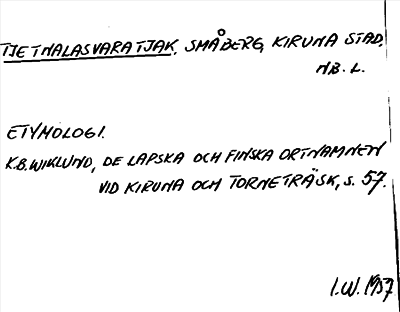 TJETNALASVARATJAK, SMÅBERG, KIRUNA STAD,
NB. L.
ETYMOLOGI.
K.B. WIKLUND, DE LAPSKA OCH FINSKA ORTNAMNEN
VID KIRUNA OCH TORNETRÄSK, S. 57.
I.W. 1957